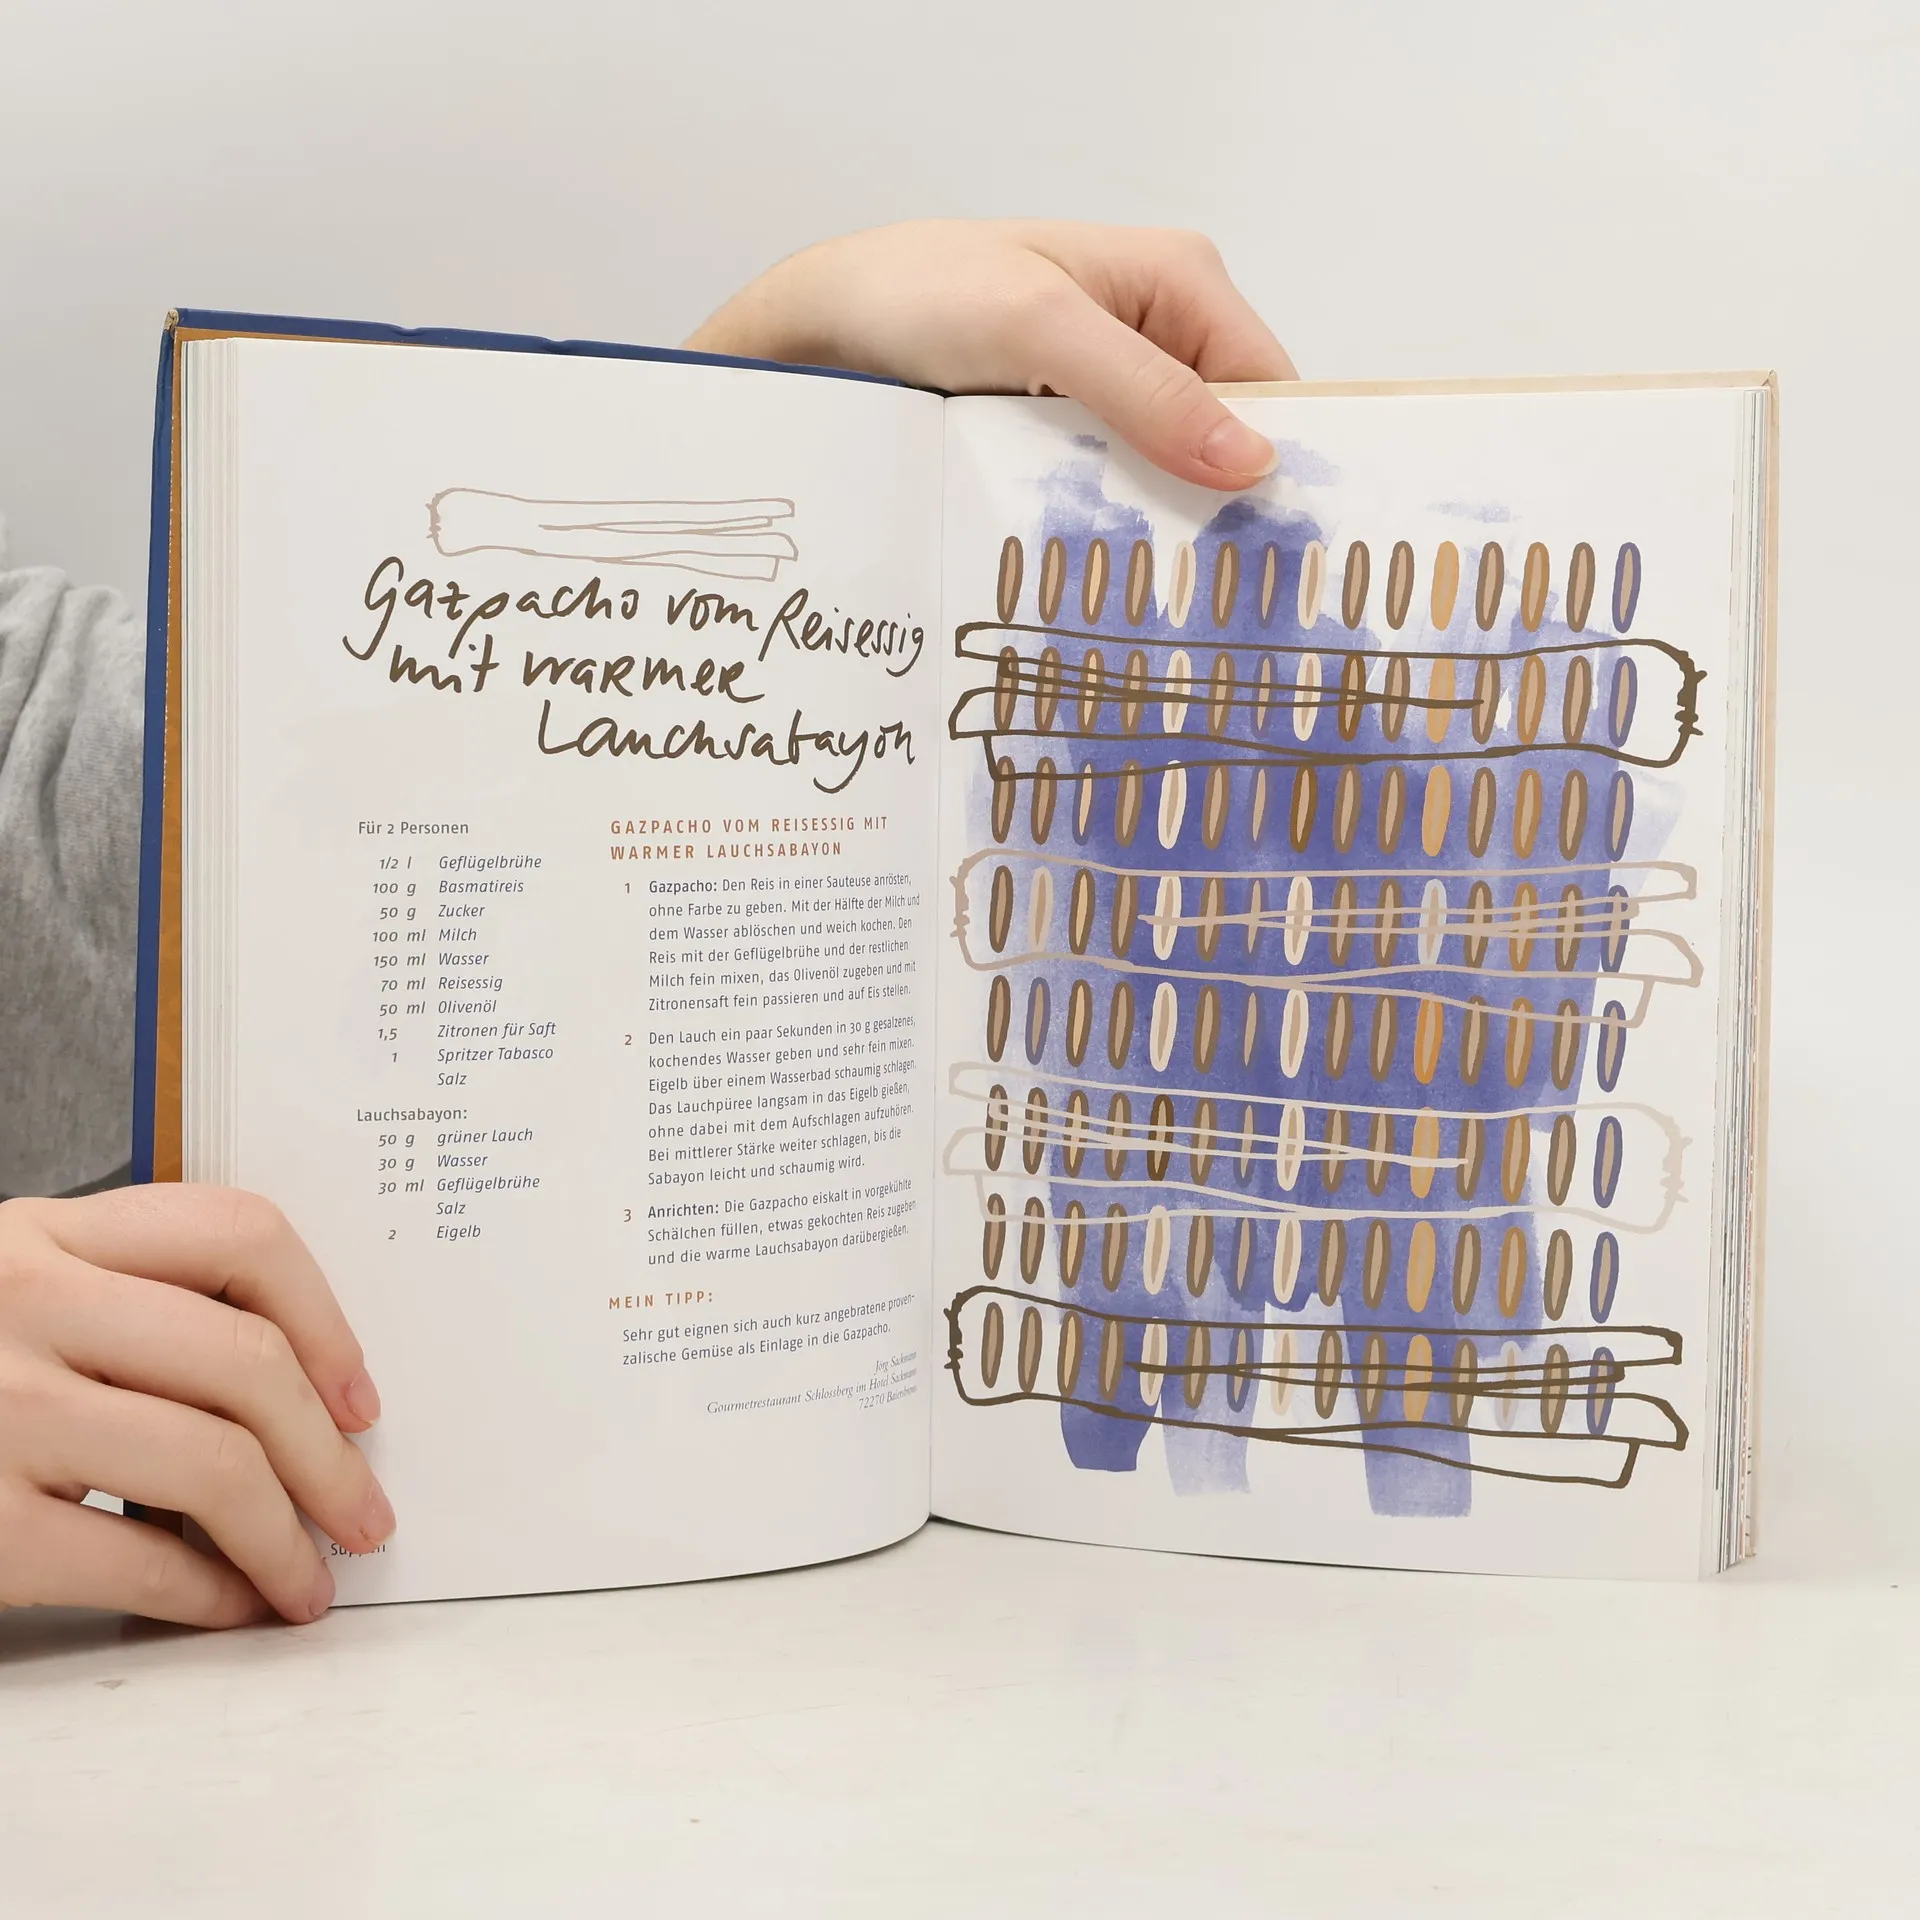 Gazpacho vom Reisessig
mit warmer
Lauchsabayon
Für 2 Personen
1/2 l Geflügelbrühe
100 g Basmatireis
50 g Zucker
100 ml Milch
150 ml Wasser
70 ml Reisessig
50 ml Olivenöl
1,5 Zitronen für Saft
1 Spritzer Tabasco
Salz
Lauchsabayon:
50 g grüner Lauch
30 g Wasser
30 ml Geflügelbrühe
Salz
2 Eigelb
GAZPACHO VOM REISESSIG MIT
WARMER LAUCHSABAYON
1 Gazpacho: Den Reis in einer Sauteuse anrösten,
ohne Farbe zu geben. Mit der Hälfte der Milch und
dem Wasser ablöschen und weich kochen. Den
Reis mit der Geflügelbrühe und der restlichen
Milch fein mixen, das Olivenöl zugeben und mit
Zitronensaft fein passieren und auf Eis stellen.
2 Den Lauch ein paar Sekunden in 30 g gesalzenes,
kochendes Wasser geben und sehr fein mixen.
Eigelb über einem Wasserbad schaumig schlagen.
Das Lauchpüree langsam in das Eigelb gießen,
ohne dabei mit dem Aufschlagen aufzuhören.
Bei mittlerer Stärke weiter schlagen, bis die
Sabayon leicht und schaumig wird.
3 Anrichten: Die Gazpacho eiskalt in vorgekühlte
Schälchen füllen, etwas gekochten Reis zugeben
und die warme Lauchsabayon darübergießen.
MEIN TIPP:
Sehr gut eignen sich auch kurz angebratene proven-
zalische Gemüse als Einlage in die Gazpacho.
Jörg Sackmann
Gourmetrestaurant Schlossberg im Hotel Sackmann
72270 Baiersbronn